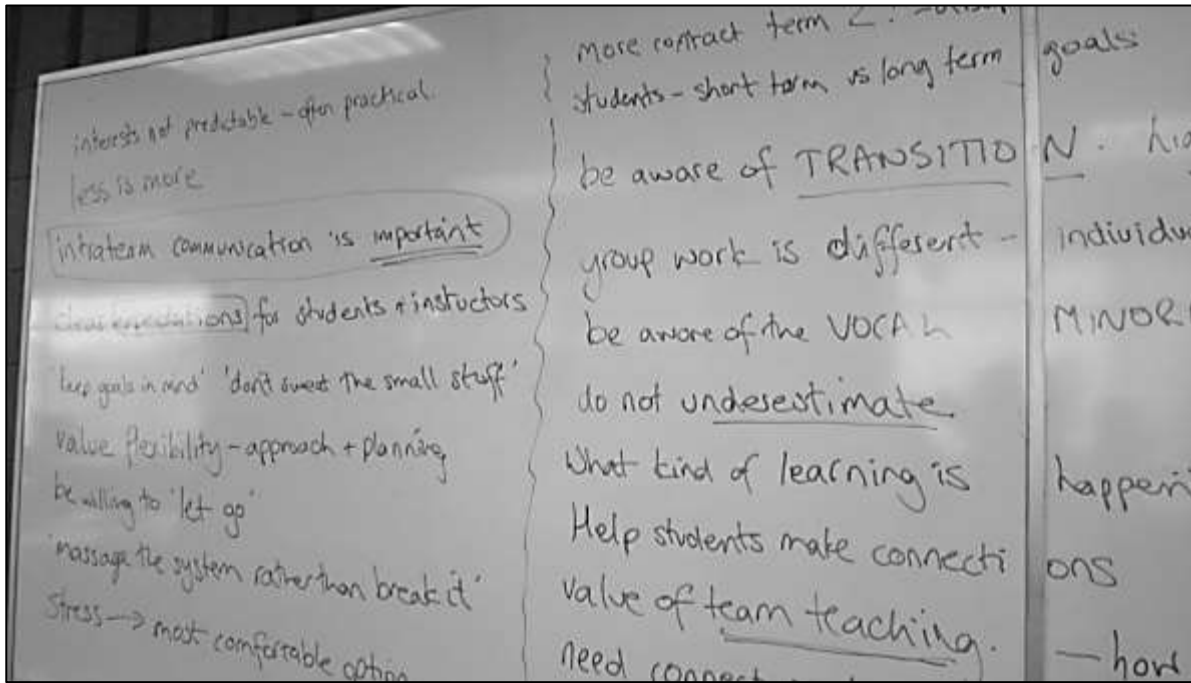 interests not predictable - often practical
less is more
intrateam communication is important
clear expectations for students + instuctors
'keep goals in mind' 'don't sweat the small stuff'
value flexibility - approach + planning
be willing to 'let go'
'massage the system rather than break it'
Stress → most comfortable option
more contract term 2
students - short term vs long term goals
be aware of TRANSITION.
group work is different -
be aware of the VOCAL
do not underestimate
What kind of learning is
Help students make connections
value of team teaching.
need - how